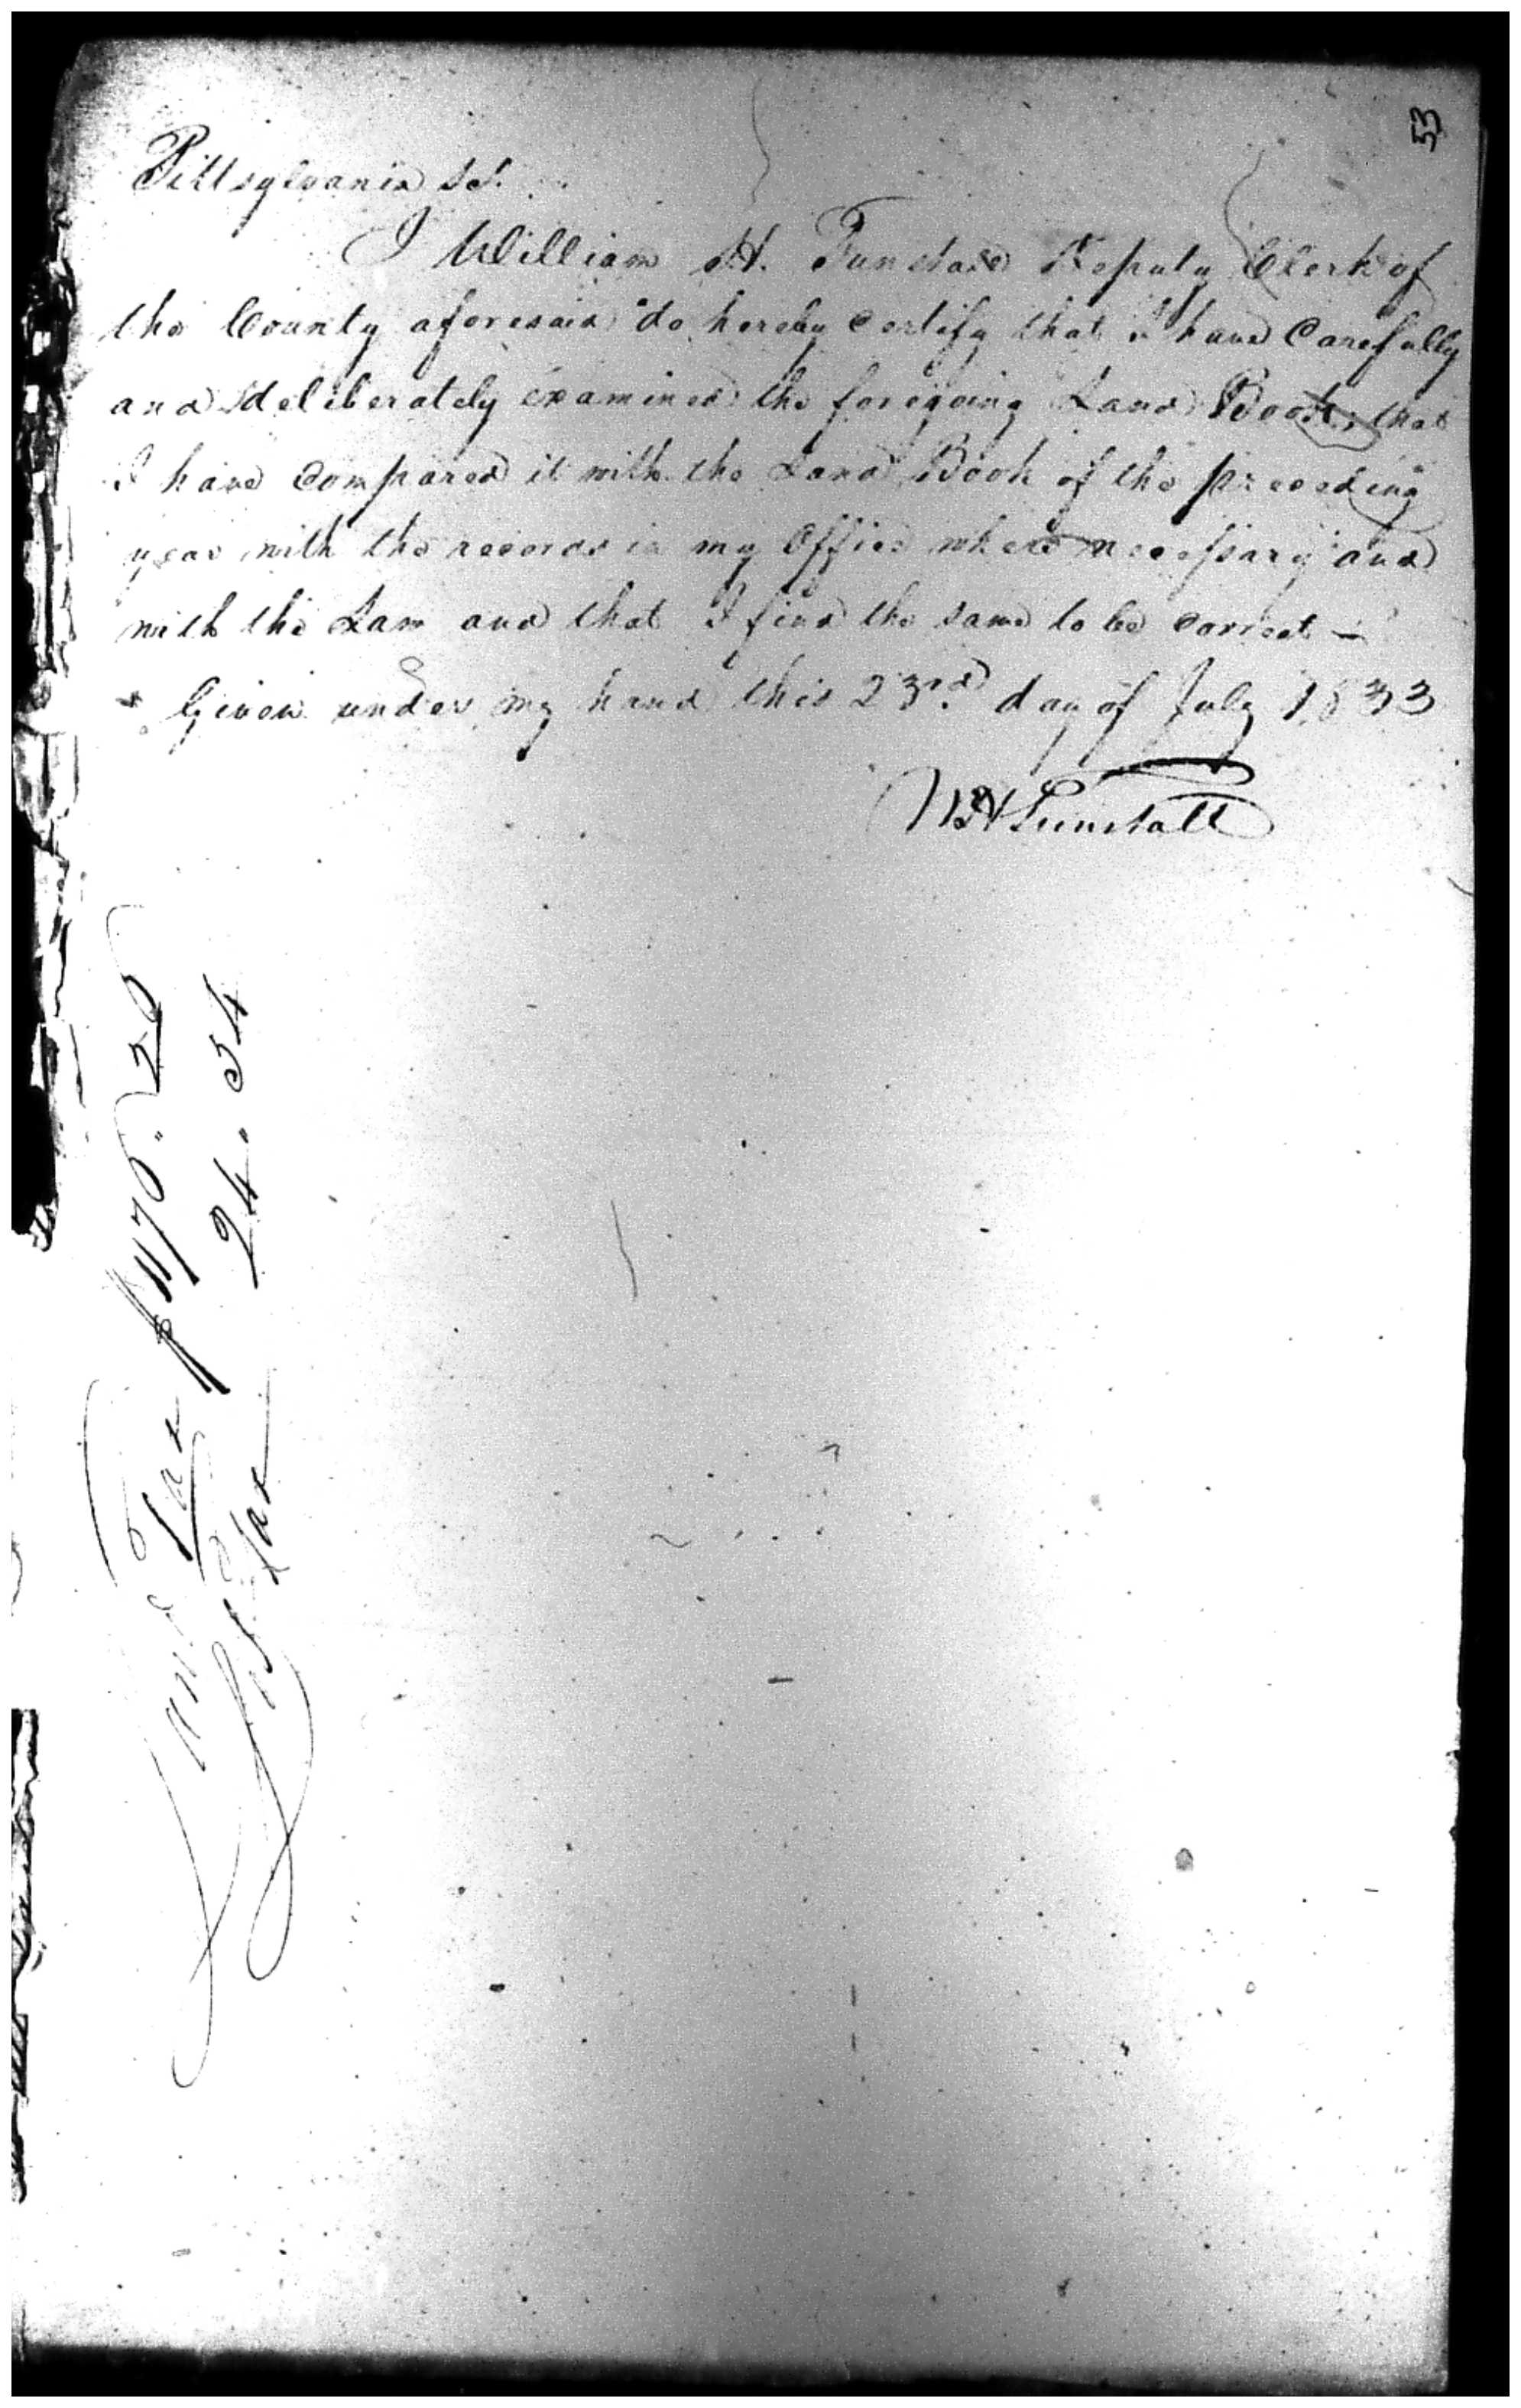 53
Pittsylvania Sct.
I William H. Tunstall Deputy Clerk of
the County aforesaid do hereby certify that I have carefully
and deliberately examined the foregoing Land Book, that
I have compared it with the Land Book of the preceeding
year with the records in my Office where necessary and
with the Law and that I find the same to be correct —
Given under my hand this 23rd day of July 1833
WH Tunstall
Land Tax $
Lot Tax 24.54